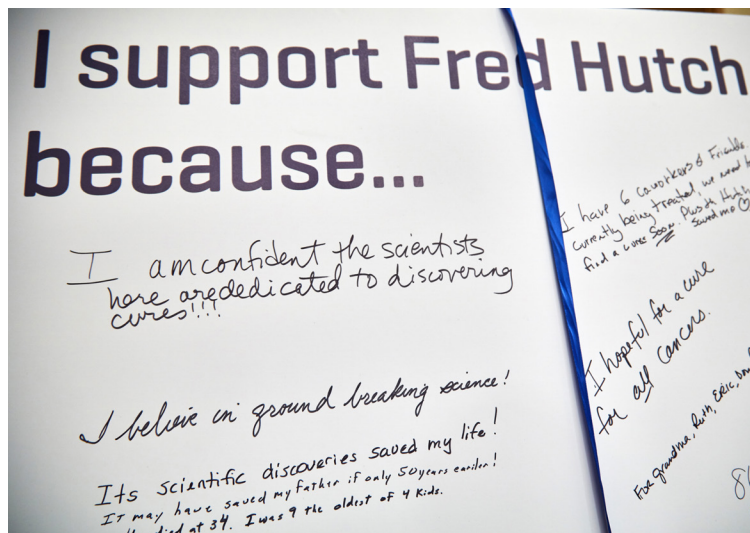 I support Fred Hutch
because...
I am confident the scientists
here are dedicated to discovering
cures!!!
I believe in ground breaking science!
Its scientific discoveries saved my life!
It may have saved my father if only 50 years earlier!
died at 34. I was 9 the oldest of 4 kids.
I have 6 coworkers & Friends
currently being treated, we need
find a cure soon. Plus the Hutch
saved me
I hopeful for a cure
for all cancers.
For Grandma, Ruth, Eric,